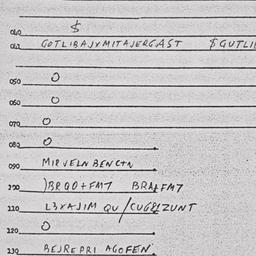 $
GOTLIBAJXMITAJERGAST $GUTLI
050 0
060 0
070 0
082 0
090 MIRVELNBENCTN
)BRQO+FM7 BRA
110 L3XAJIM QU/CUG
120 0
130 BEJREPRI AGOFEN